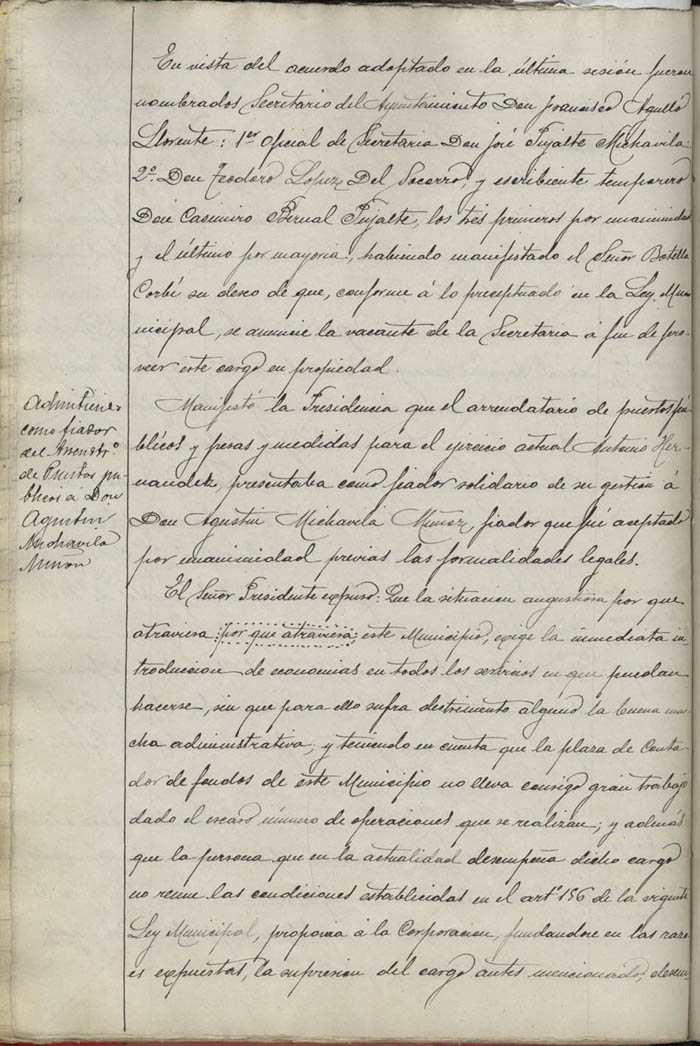 En vista del acuerdo adoptado en la última sesión fueron
nombrados Secretario del Ayuntamiento Don Francisco Agulló
Llorente: 1er oficial de Secretaria Don José Pujalte Michavila:
2º Don Teodoro Lopez Del Socorro, y escribiente temporero
Don Casimiro Bernal Pujalte, los tres primeros por unanimidad
y el último por mayoria, habiendo manifestado el Señor Botella
Corbí su deseo de que, conforme á lo preceptuado en la Ley Mu-
nicipal, se anuncie la vacante de la Secretaria á fin de pro-
veer este cargo en propiedad.
Admitiendo
como fiador
del Arrendtrº
de Puestos pu-
blicos a Don
Agustin
Michavila
Muñoz
Manifestó la Presidencia que el arrendatario de puestos pú-
blicos y pesas y medidas para el ejercicio actual Antonio Her-
nandez, presentaba como fiador solidario de su gestión á
Don Agustin Michavila Muñoz, fiador que fué aceptado
por unanimidad previas las formalidades legales.
El Señor Presidente expuso: Que la situacion angustiosa por que
atraviesa: por que atraviesa: este Municipio, exige la inmediata in-
troduccion de economias en todos los servicios en que puedan
hacerse, sin que para ello sufra detrimento alguno la buena mar-
cha administrativa, y teniendo en cuenta que la plaza de Conta-
dor de fondos de este Municipio no lleva consigo gran trabajo
dado el escaso número de operaciones que se realizan; y además
que la persona que en la actualidad desempeña dicho cargo
no reune las condiciones establecidas en el artº 156 de la vigente
Ley Municipal, proponia á la Corporacion, fundandose en las razo-
es expuestas, la supresion del cargo antes mencionado, desem-